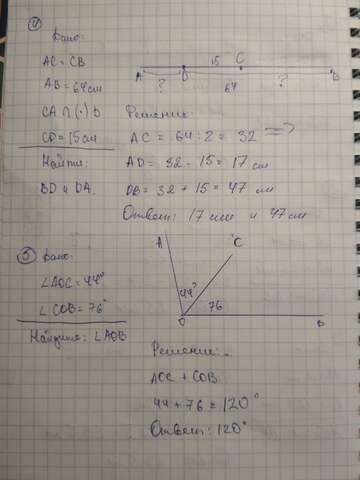 ④ Дано:
AC = CB
AB = 64 см
CA ∩ (·) D
CD = 15 см
Найти:
BD и DA.
15 C
A D B
? 64 ?
Решение:
AC = 64 : 2 = 32 =>
AD = 32 - 15 = 17 см
DB = 32 + 15 = 47 см
Ответ: 17 см и 47 см
⑤ Дано:
∠AOC = 44°
∠COB = 76°
Найдите: ∠AOB
A C
44°
76
O B
Решение:
AOC + COB
44 + 76 = 120°
Ответ: 120°